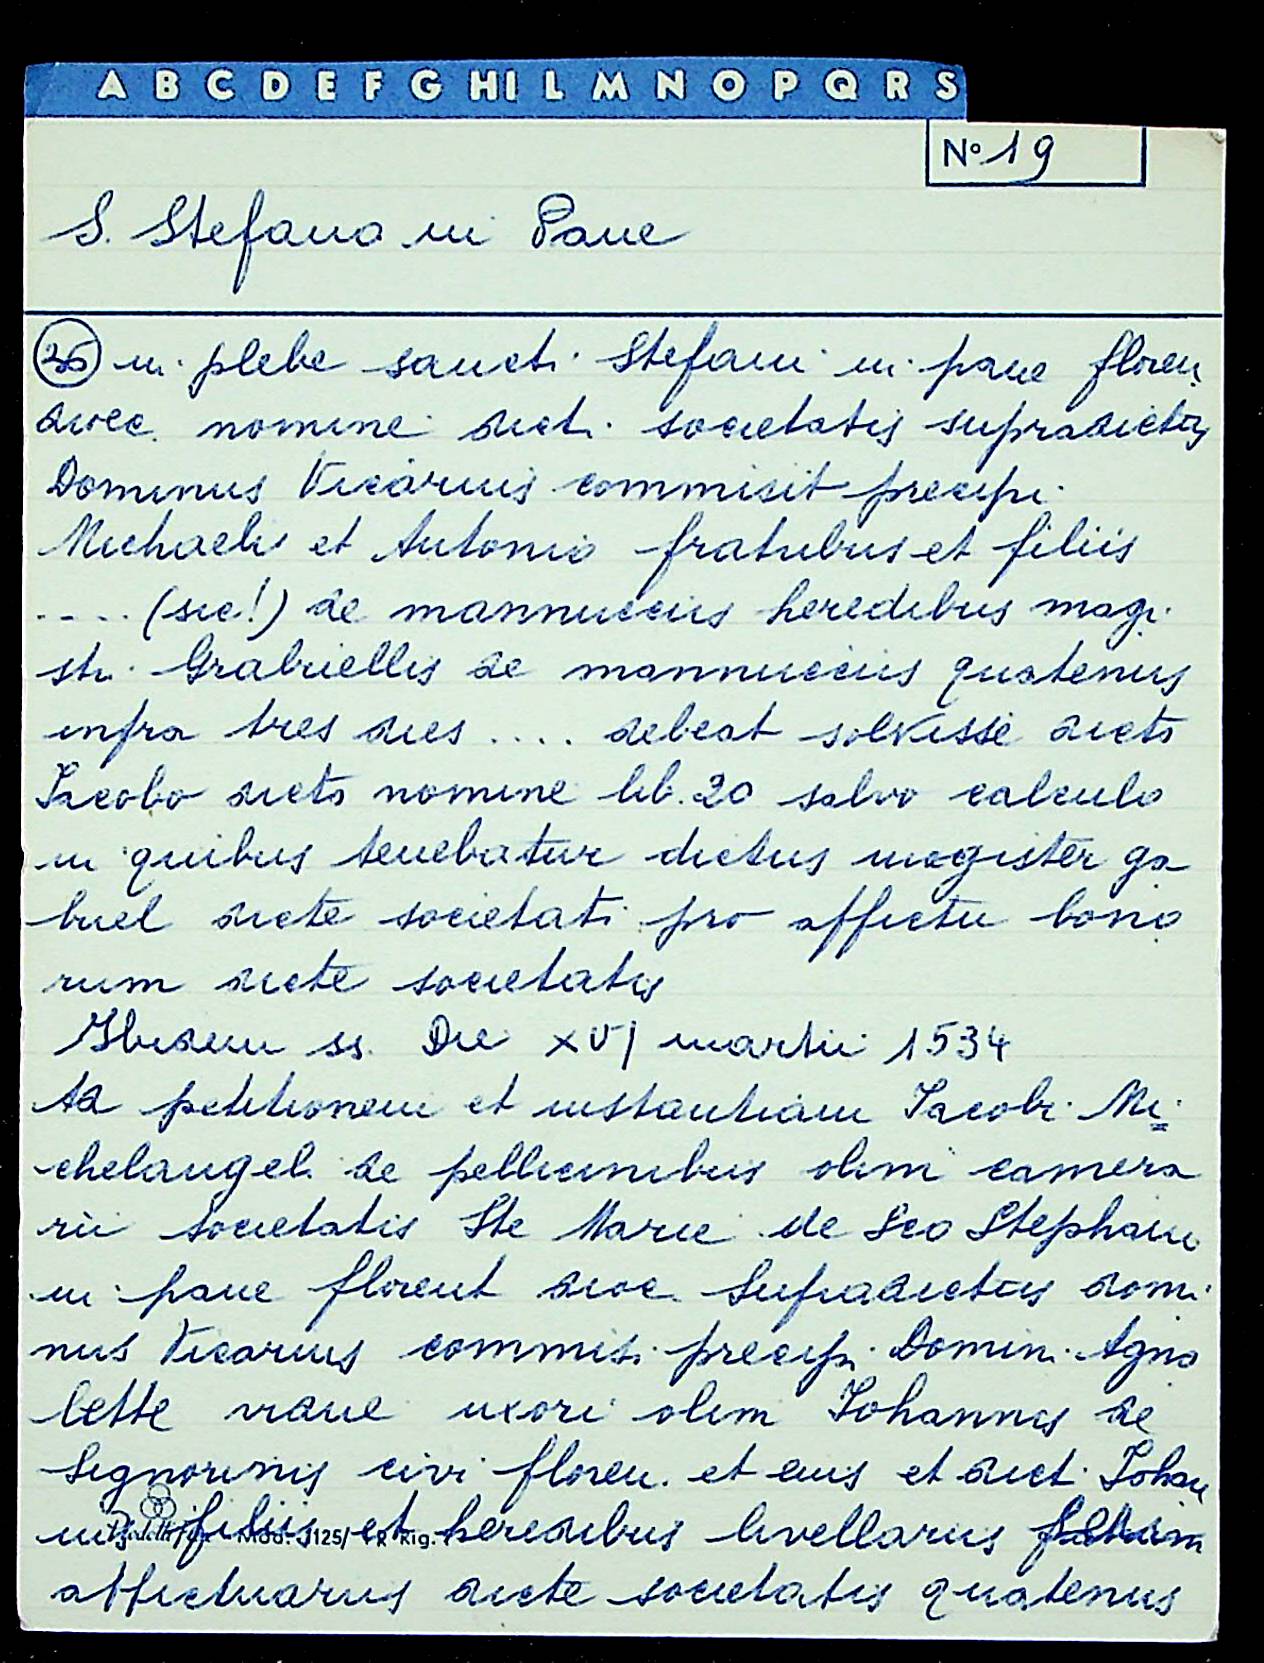 A B C D E F G H I L M N O P Q R S
N° 19
S. Stefano in Pane
26 in plebe sancti Stefani in pane floren.
dioec. nomine dicti societatis supradictus
Dominus Vicarius commisit precipi
Michaeli et Antonio fratribus et filiis
.... (sic!) de mannucciis heredibus magi
stri Grabriellis de mannucciis quatenus
infra tres dies .... debeat solvisse dicto
Iacobo dicto nomine lib. 20 salvo calculo
in quibus tenebatur dictus magister ga
briel dicte societati pro affictu bono
rum dicte societatis
Ibidem ss. Die XVI martii 1534
Ad petitionem et instantiam Iacobi Mi
chelangeli de pellicinibus olim camera
rii societatis Ste Marie de Sco Stephano
in pane florent dioc. Supradictus domi
nus Vicarius commisi precipi Domin. Agno
lette vidue uxori olim Iohannis de
Signorinis civi floren. et eius et dict. Iohan
nis filiis et heredibus livellariis
affictuariis dicte societatis quatenus